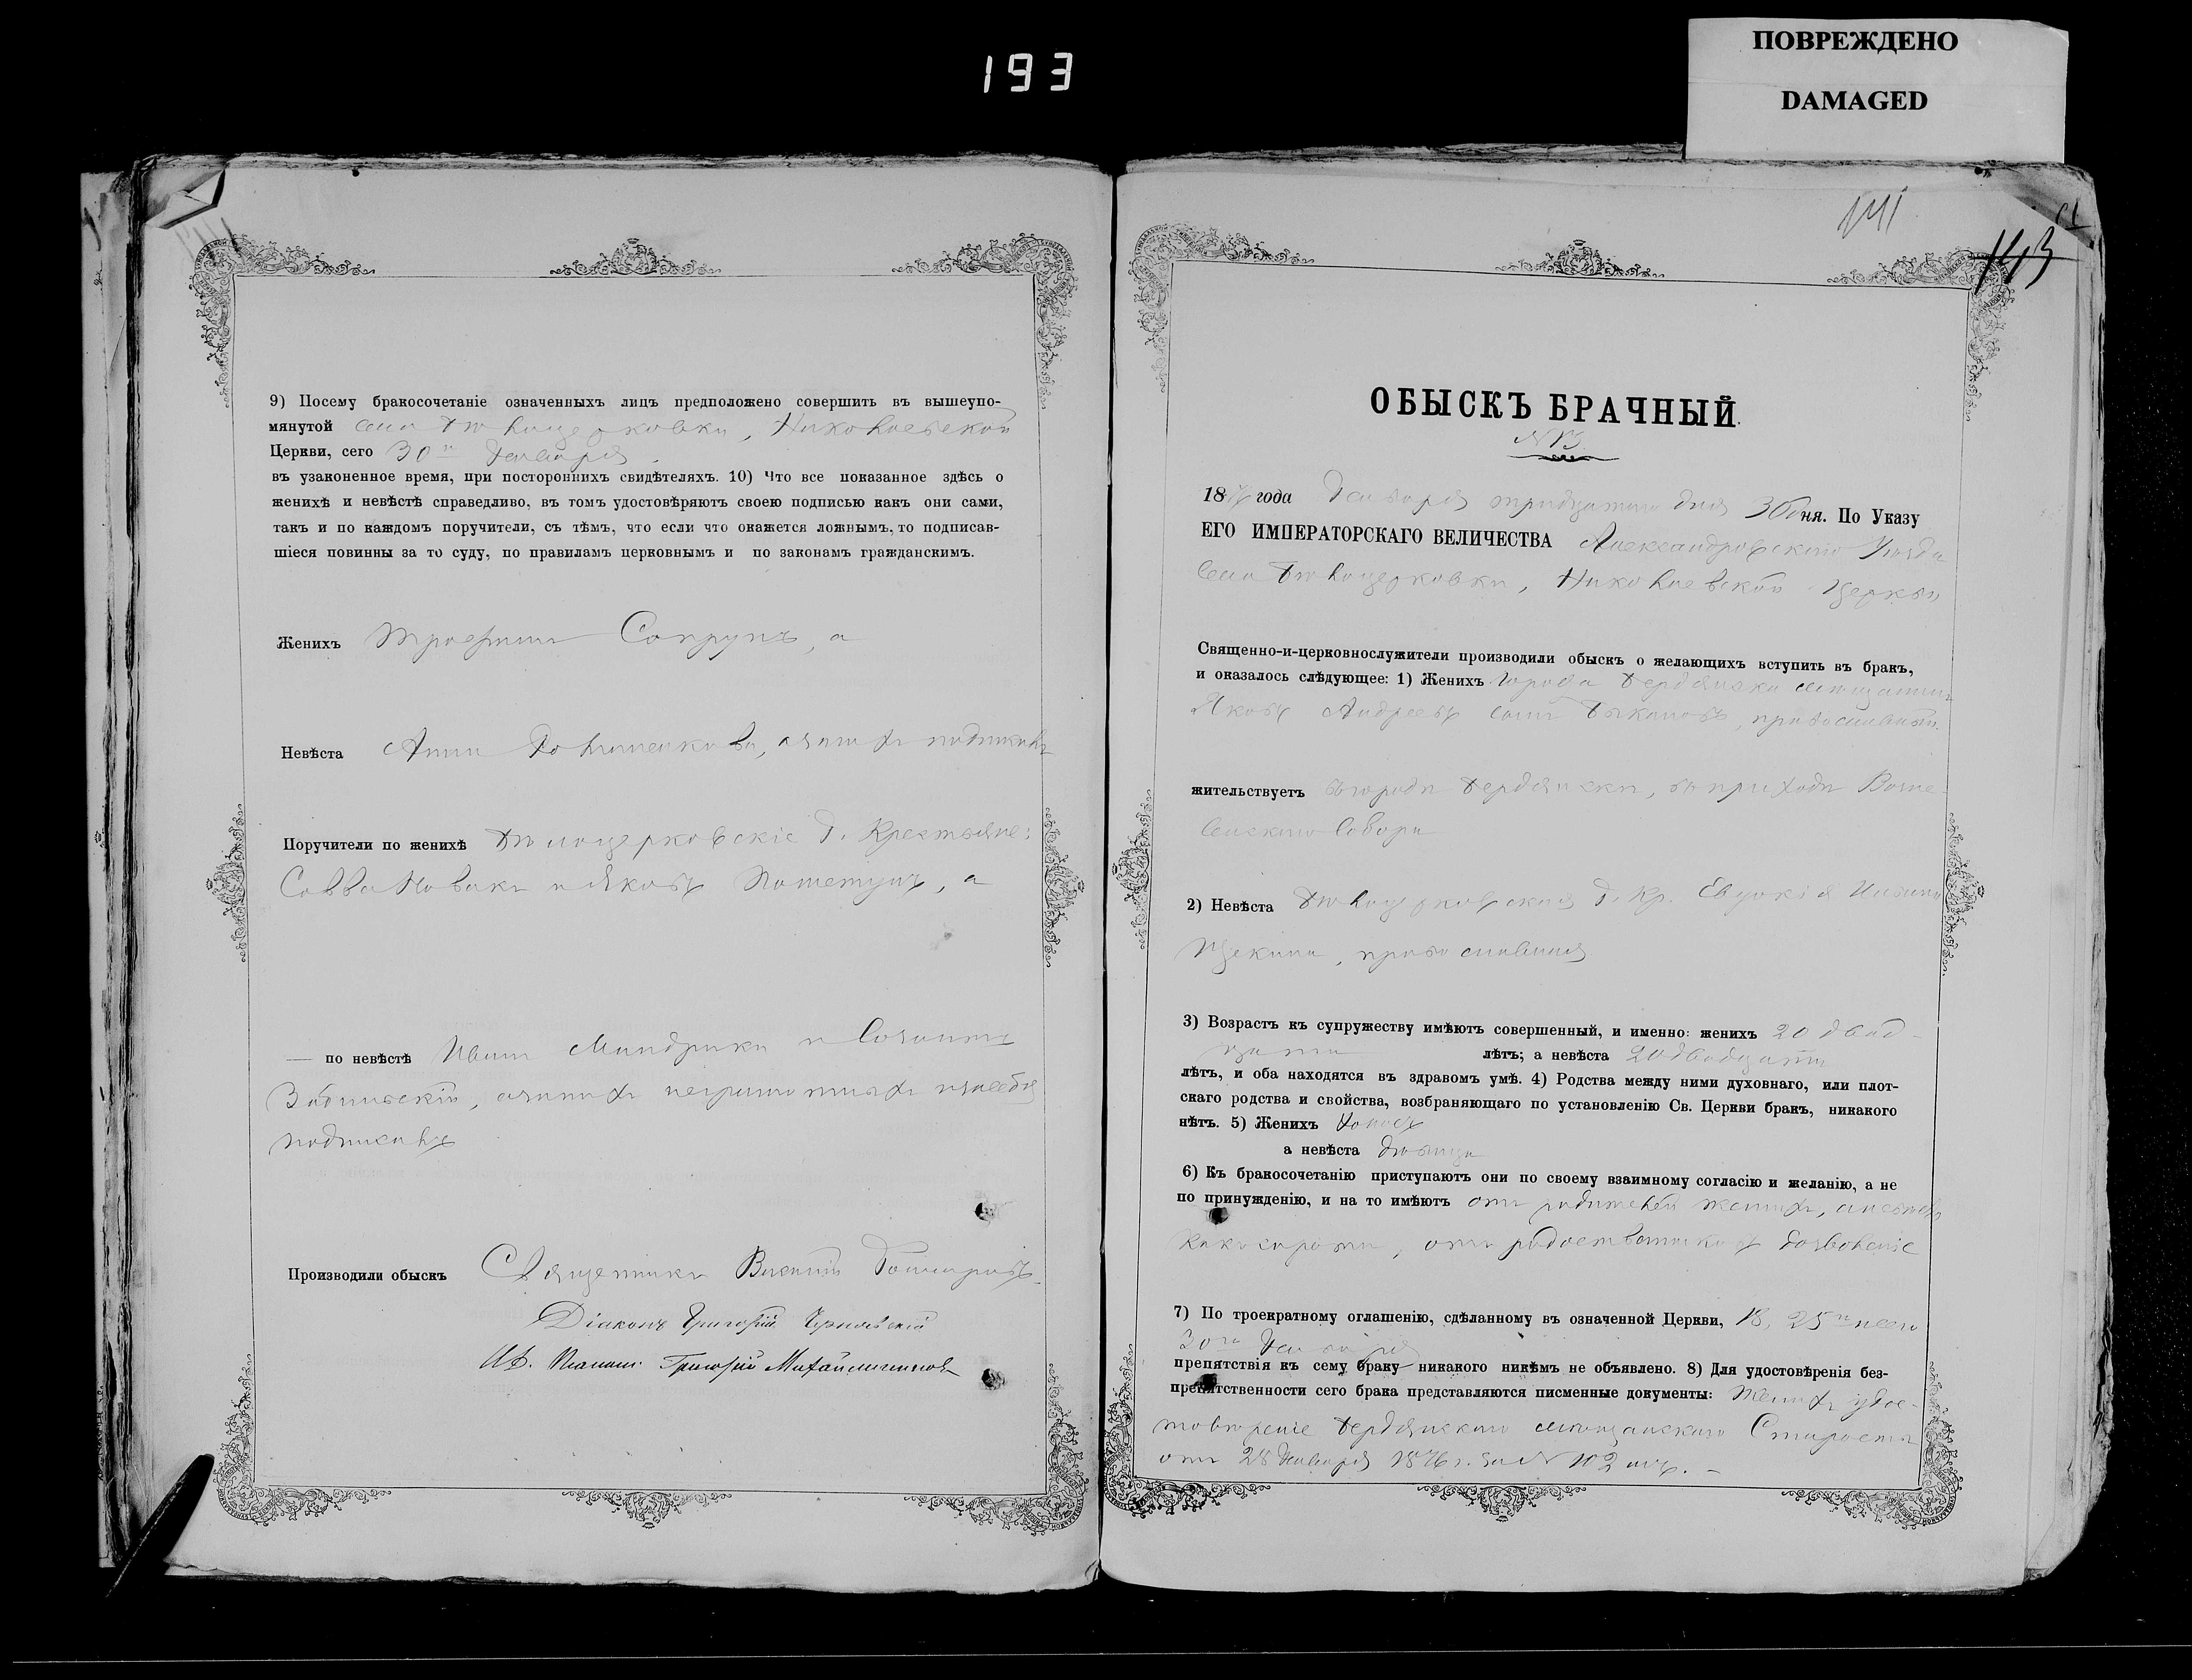 193
ПОВРЕЖДЕНО
DAMAGED
141
143
9) Посему бракосочетаніе означенныхъ лицъ предположено совершить въ вышеупо-
мянутой села Бѣлоцерковки, Николаевской
Церкви, сего 30го Января.
въ узаконенное время, при постороннихъ свидѣтеляхъ. 10) Что все показанное здѣсь о
женихѣ и невѣстѣ справедливо, въ томъ удостовѣряютъ своею подписью какъ они сами,
такъ и по каждомъ поручители, съ тѣмъ, что если что окажется ложнымъ, то подписав-
шіеся повинны за то суду, по правиламъ церковнымъ и по законамъ гражданскимъ.
Женихъ Трофимъ Сопрунъ, а
Невѣста Анна
Поручители по женихѣ Бѣлоцерковскіе Г. Крестьяне:
Савва Новакъ и Яковъ а
— по невѣстѣ Иванъ Мандрыка и
неграмотныхъ и за себя
подписалъ
Производили обыскъ Священникъ Василій
Діаконъ Григорій Чернявскій
Григорій
ОБЫСКЪ БРАЧНЫЙ.
1876 года Января тридцатого дня 30 дня. По Указу
ЕГО ИМПЕРАТОРСКАГО ВЕЛИЧЕСТВА Александровскаго Уѣзда
Села Бѣлоцерковки, Николаевской Церкви
Священно-и-церковнослужители производили обыскъ о желающихъ вступить въ бракъ,
и оказалось слѣдующее: 1) Женихъ Города Бердянска мѣщанинъ
Яковъ Андреевъ сынъ Быкановъ, православный.
жительствуетъ въ городѣ Бердянскѣ, въ приходѣ Возне-
сенскаго Собора
2) Невѣста Бѣлоцерковская Г. Кр. Евдокія Иванова
Щекина, православная
3) Возрастъ къ супружеству имѣютъ совершенный, и именно: женихъ 20 двад-
цати лѣтъ; а невѣста 20 двадцати
лѣтъ, и оба находятся въ здравомъ умѣ. 4) Родства между ними духовнаго, или плот-
скаго родства и свойства, возбраняющаго по установленію Св. Церкви бракъ, никакого
нѣтъ. 5) Женихъ холостъ
а невѣста дѣвица
6) Къ бракосочетанію приступаютъ они по своему взаимному согласію и желанію, а не
по принужденію, и на то имѣютъ отъ родителей женихъ, а невѣста
какъ сирота, отъ родственниковъ дозволеніе
7) По троекратному оглашенію, сдѣланному въ означенной Церкви, 18, 25го и сего
30го Января
препятствія къ сему браку никакого никѣмъ не объявлено. 8) Для удостовѣренія без-
препятственности сего брака представляются писменные документы: Женихъ удос-
товѣреніе Бердянскаго мѣщанскаго Старосты
отъ 28 Января 1876 г. за №